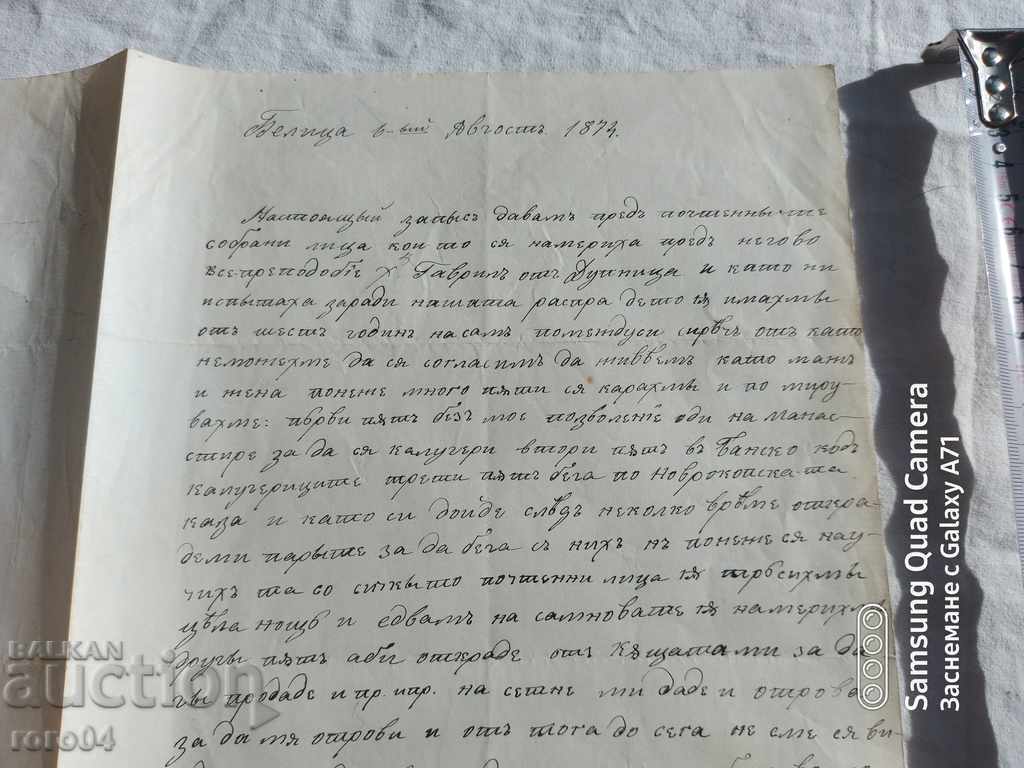 Белица 6-ый Августъ 1874.
Настоящый записъ давамъ предъ почтенны-те
собрани лица кои то ся намериха предъ негово
Все-преподобіе Х. Гаврилъ отъ Дупница и като ни
испытаха заради нашата распра дето ѭ имахмы
отъ шесть годинъ насамъ помежду си сирѣчь отъ като
неможехме да ся согласимъ да живѣемъ като мажъ
и жена понеже много пѫти ся карахмы и по миру-
вахме: първи пѫть безъ мое позволеніе оди на Манас-
стире за да ся калугери втори пѫтъ въ Банско кодъ
калугериците трети пѫтъ бѣга по Новрокопска-та
каза и като си дойде слѣдъ неколко врѣме открa-
деми парыте за да бѣга съ нихъ нъ понеже ся нау-
чихъ та со сичкыто почтенни лица ѭ търсихмы
цѣла нощь и едвамъ на самновате ѭ намерихмы
другы пѫтъ аби откраде отъ кѫщата ми за да
гы продаде и пр. и пр. на сетне ми даде и отрова
за да мя отрови и отъ тога до сега не сме ся ви-
BALKAN
auction
roro04
Samsung Quad Camera
Заснемане с Galaxy A71